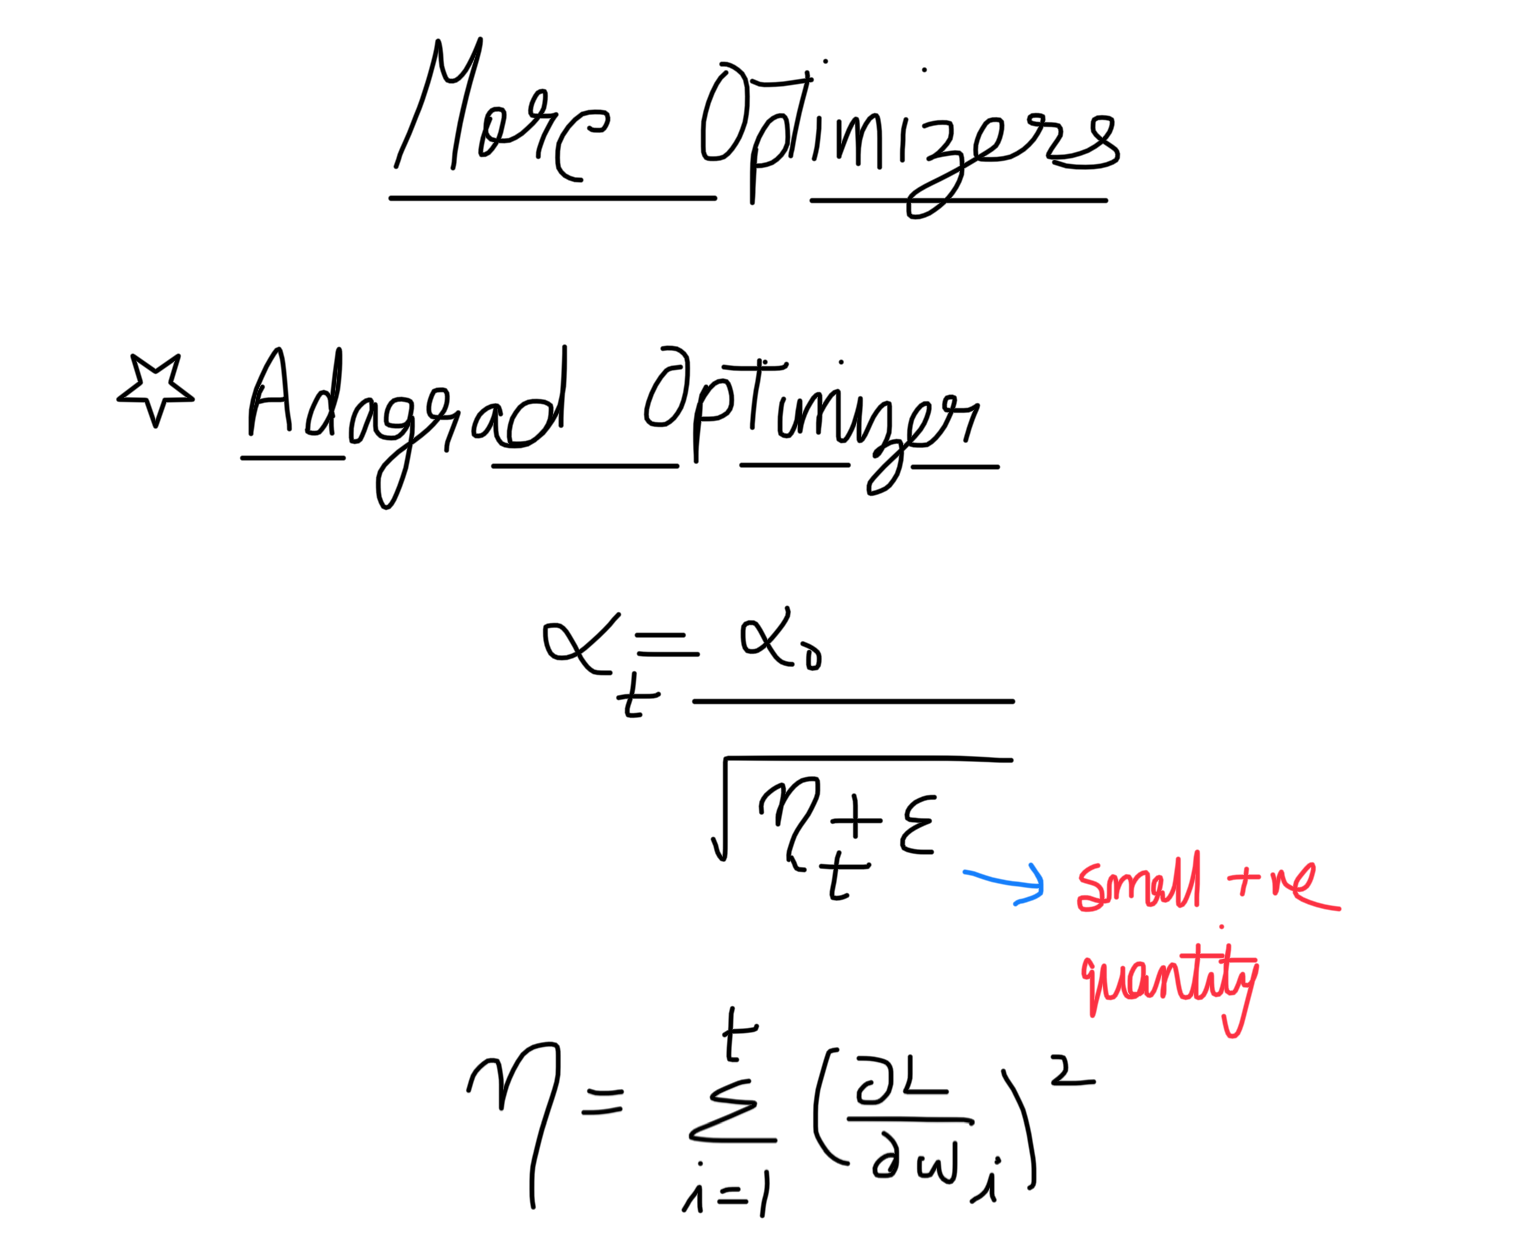 More Optimizers
☆ Adagrad Optimizer
α_t = α_0 / √(η_t + ε)
→ small +ve
quantity
η = Σ_{i=1}^{t} (∂L/∂w_i)^2